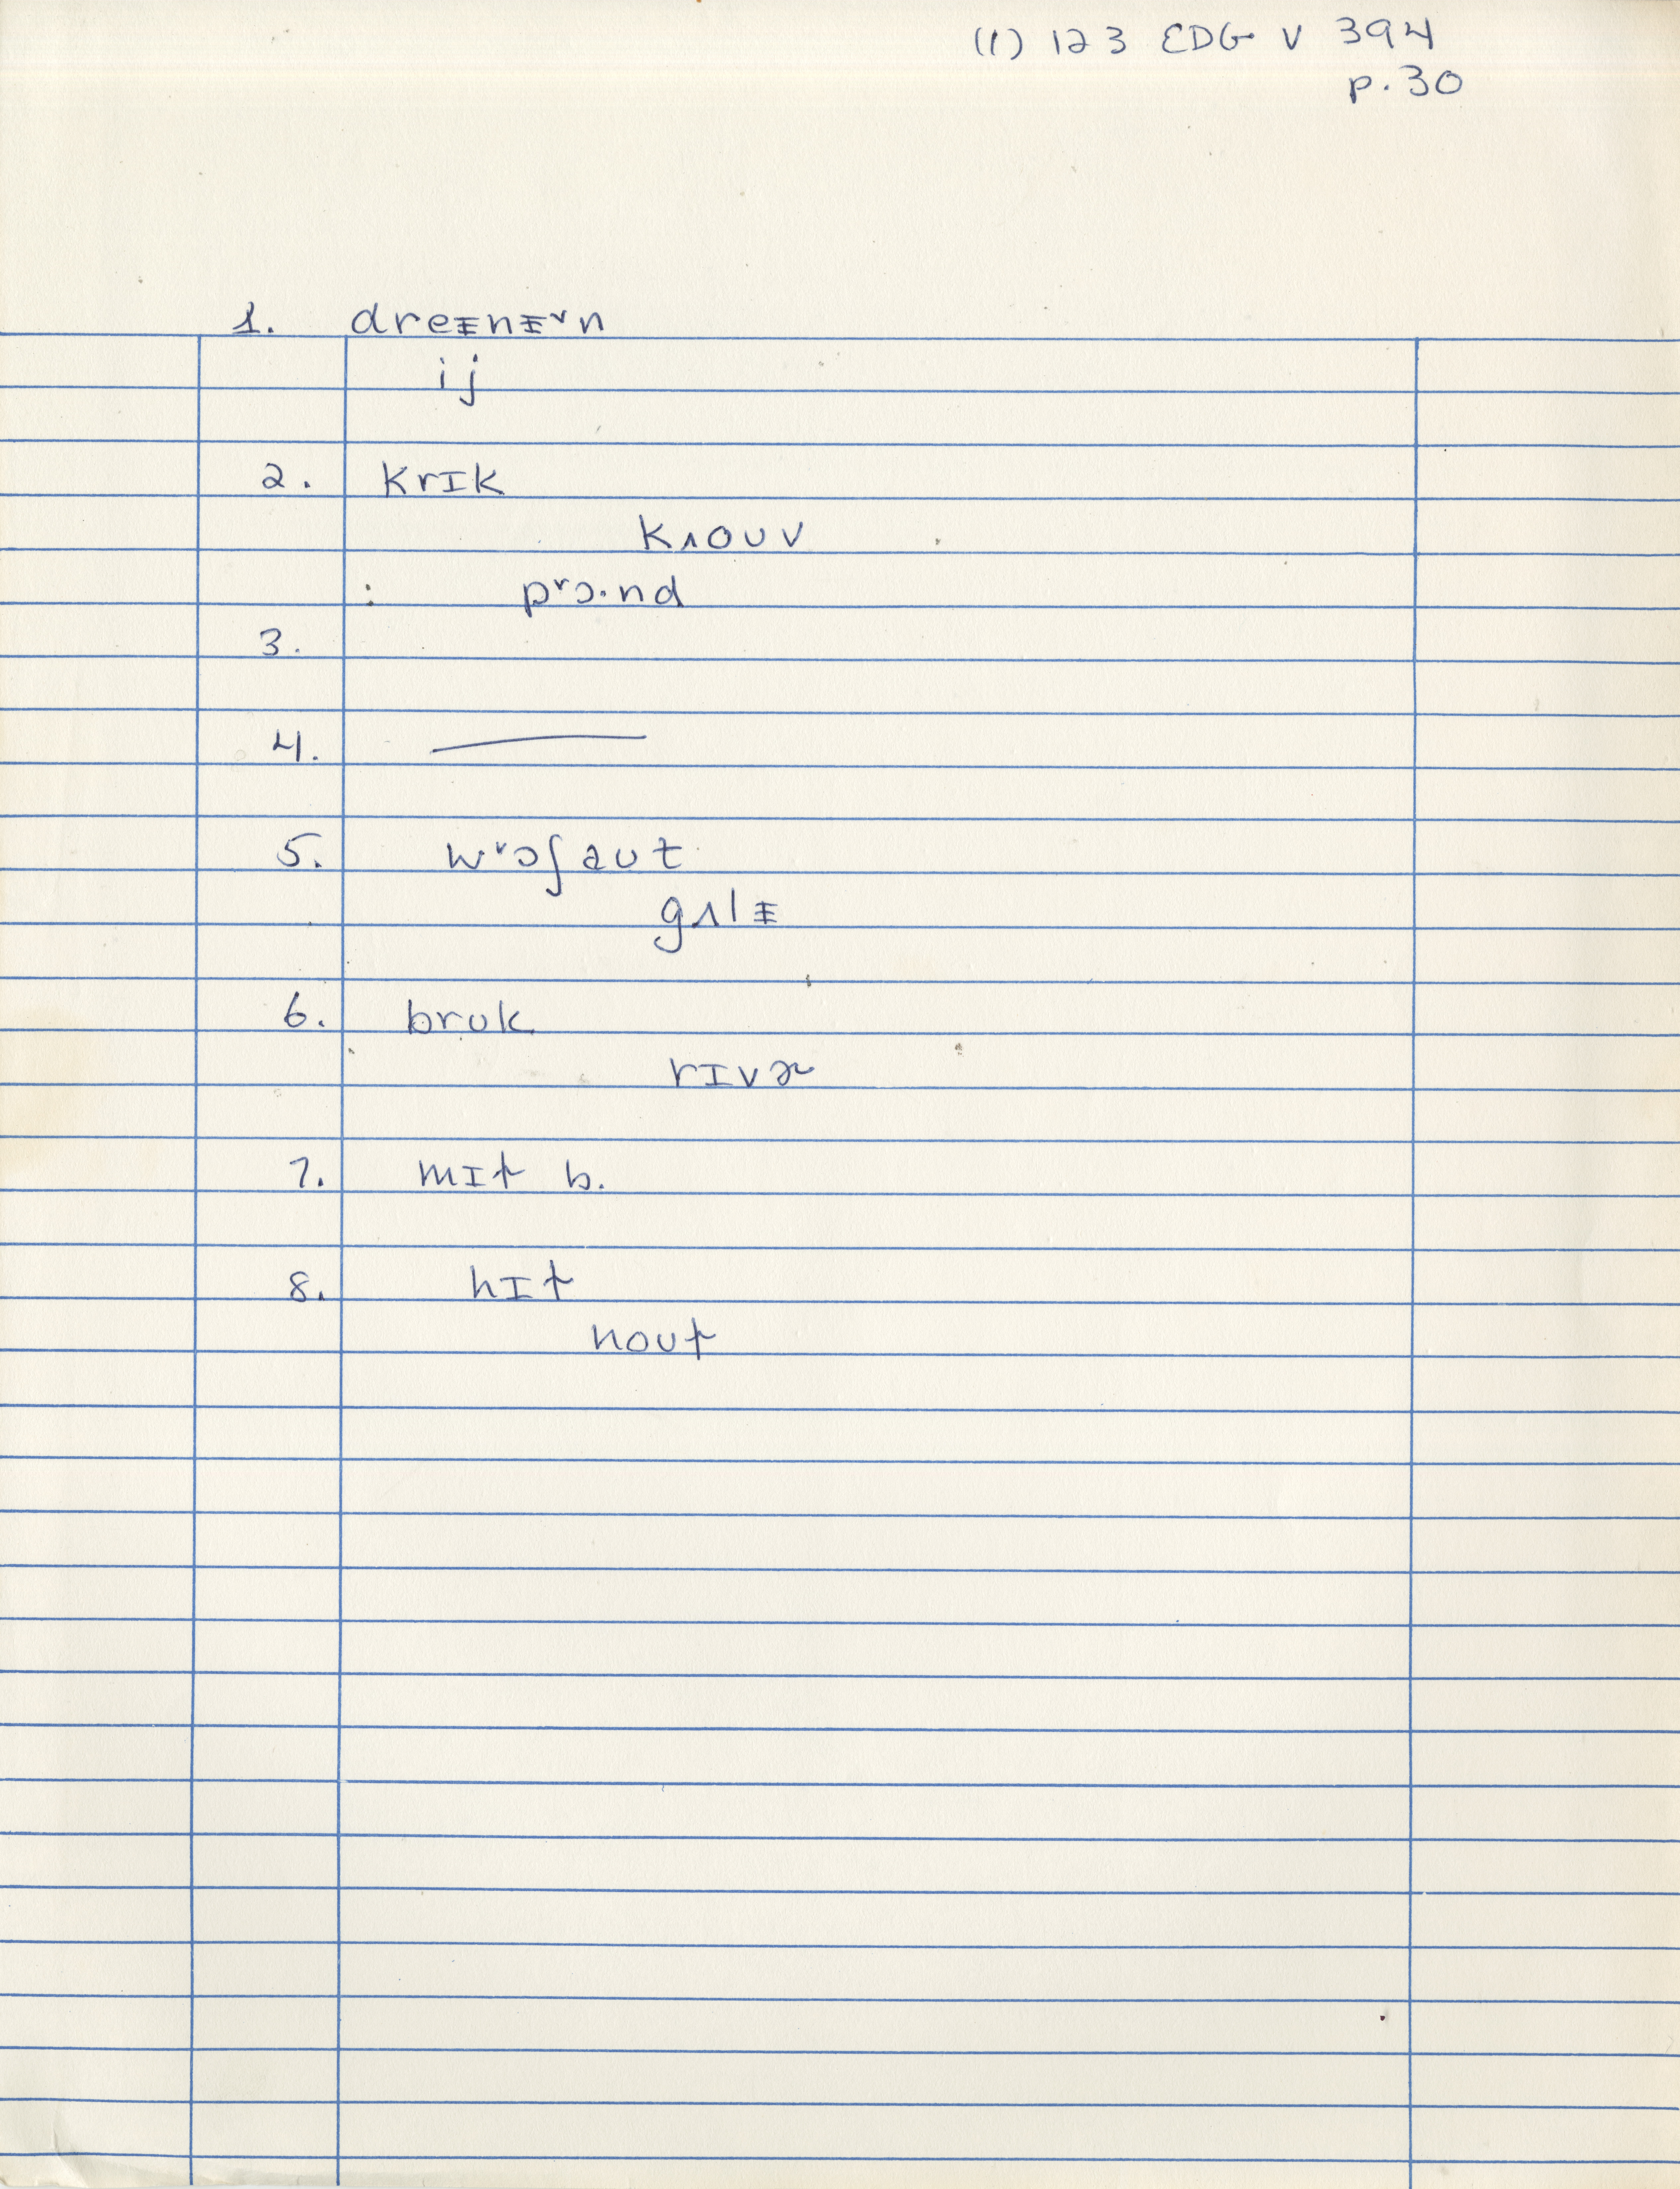 (1) 123 EDG V 394
p. 30
1. dreᵻnᵻ˅n
ij
2. krIk
kʌouv
: p˅ɔ.nd
3.
4. —
5. w˅ɔʃaut
gʌlᵻ
6. bruk
rIvɚ
7. mIt b.
8. hIt
nout